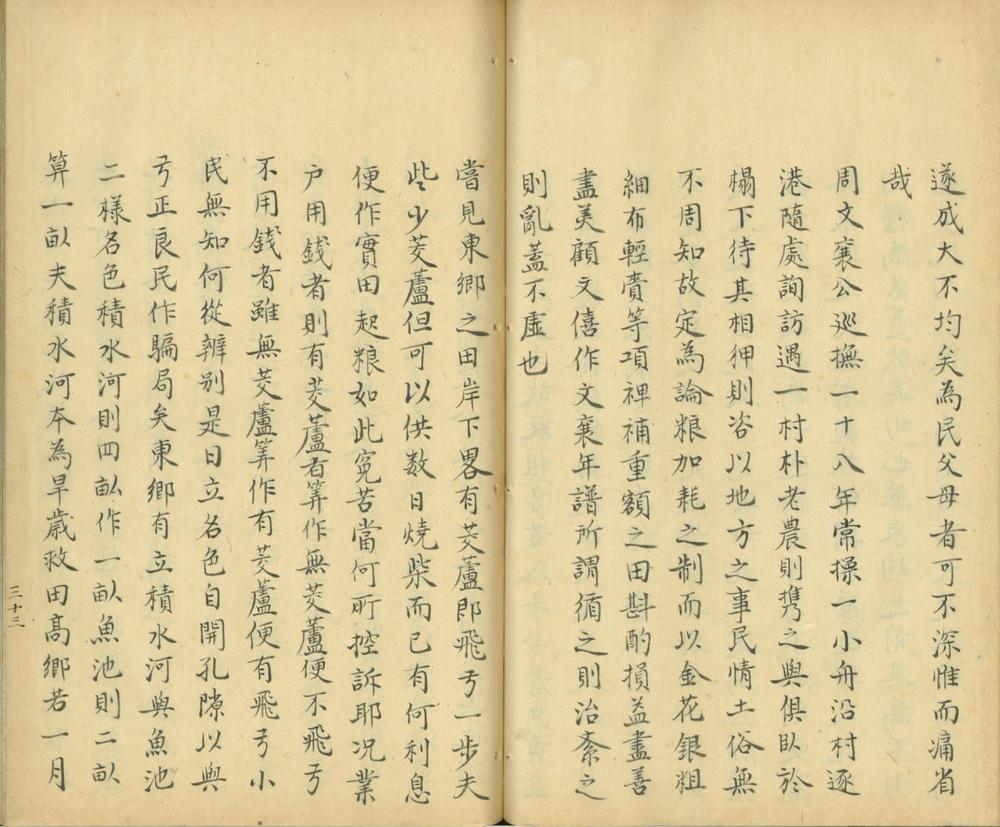 遂成大不均矣為民父母者可不深惟而痛省
哉
周文襄公巡撫二十八年常操一小舟沿村逐
港隨處詢訪遇一村朴老農則携之與俱臥於
榻下待其相狎則咨以地方之事民情土俗無
不周知故定為論粮加耗之制而以金花銀粗
細布輕賫等項裨補重額之田斟酌損益盡善
盡美顧文僖作文襄年譜所謂循之則治紊之
則亂蓋不虛也
嘗見東鄉之田岸下畧有茭蘆即飛弓一步夫
些少茭蘆但可以供数日燒柴而已有何利息
便作實田起粮如此寃苦當何所控訴耶况業
户用錢者則有茭蘆者筭作無茭蘆便不飛弓
不用錢者雖無茭蘆筭作有茭蘆便有飛弓小
民無知何從辨别是日立名色自開孔隙以與
弓正良民作騙局矣東鄉有立積水河與魚池
二樣名色積水河則四畝作一畝魚池則二畝
算一畝夫積水河夲為旱歲救田髙鄉若一月
三十三